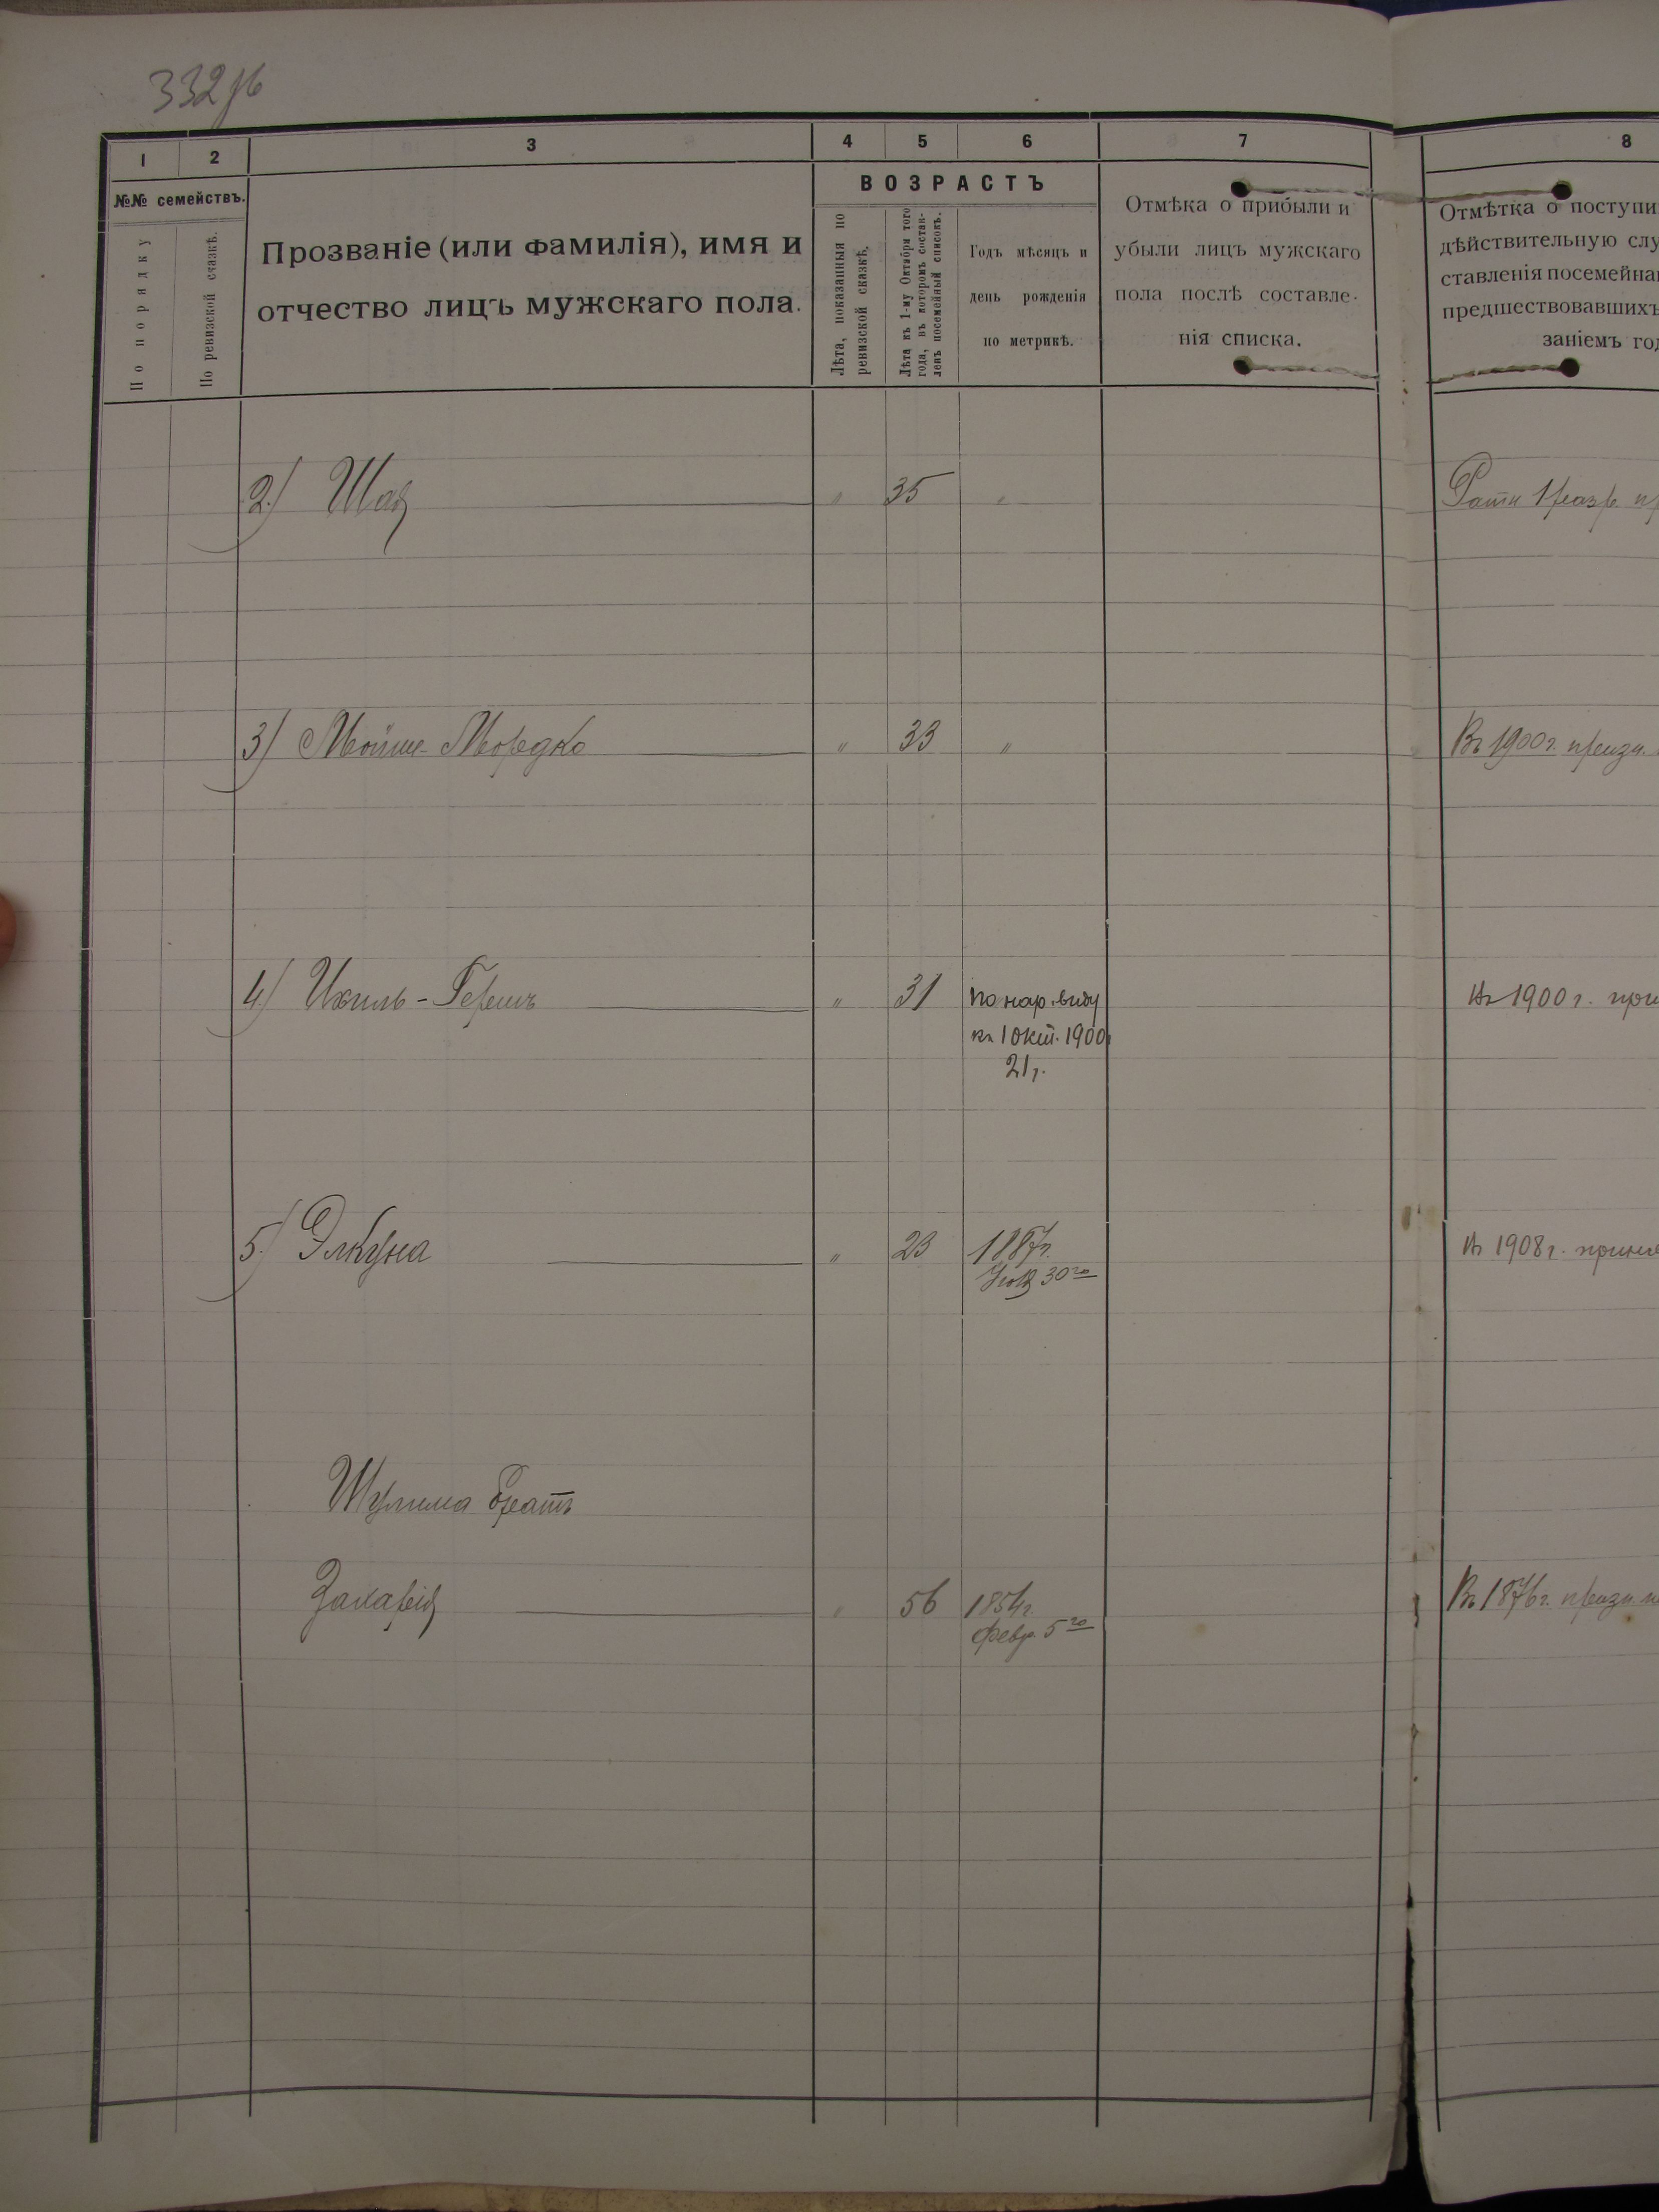 332об
1
2
3
4
5
6
7
8
№№ семействъ.
По порядку
По ревизской сказкѣ.
Прозваніе (или фамилія), имя и
отчество лицъ мужскаго пола.
ВОЗРАСТЪ
Лѣта, показанныя по
ревизской сказкѣ.
Лѣта къ 1-му Октября того
года, въ которомъ состав-
ленъ посемейный списокъ.
Годъ мѣсяцъ и
день рожденія
по метрикѣ.
Отмѣка о прибыли и
убыли лицъ мужскаго
пола послѣ составле-
нія списка.
Отмѣтка о поступи
дѣйствительную слу
ставленія посемейна
предшествовавшихъ
заніемъ год
2) Шая " 35 " Ратн 1 разр. пр
3) Мойше-Мордко " 33 " Въ 1900 г. призн.
4) Ихиль-Гершъ " 31 по нар. виду Въ 1900 г. при
къ 1 окт. 1900
21 г.
5) Элкуна " 23 1887 г. Въ 1908 г. приня
30го
Шулима братъ
Захарія " 56 1854 г. Въ 1876 г. призн.
Февр. 5го